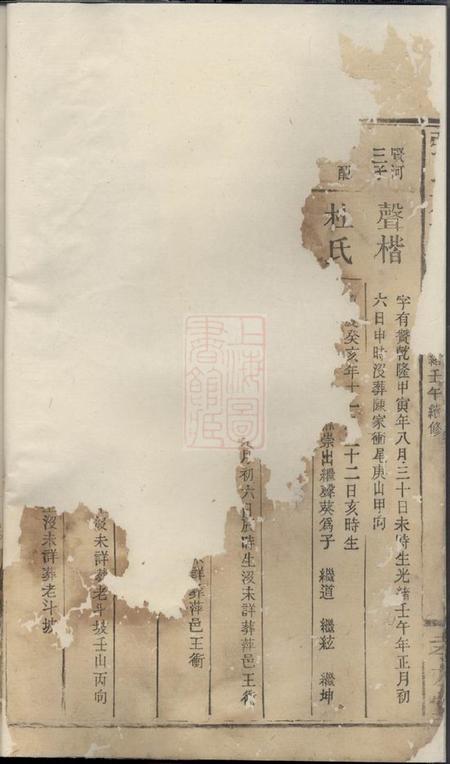 壬午續修
賢河
三子
聲楷
字有贊乾隆甲寅年八月三十日未時生光緒壬午年正月初
六日申時沒葬陳家衝尾庚山甲向
配
杜氏
癸亥年十一 二十二日亥時生
崇出繼聲葵爲子 繼道 繼絃 繼坤
月初六日 時生沒未詳葬萍邑王衝
詳葬萍邑王衝
沒未詳葬老斗坡壬山丙向
沒未詳葬老斗坡
上海圖書館藏